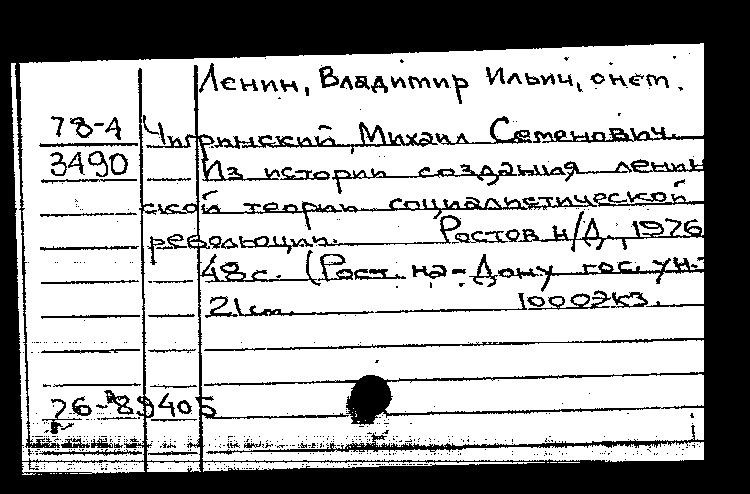 Ленин, Владимир Ильич, о нем.
78-4 Чигринский, Михаил Семенович.
3490 Из истории создания ленин
ской теории социалистической
революции. Ростов н/Д., 1976
48 с. (Рост. на-Дону гос. ун-т
21 см. 1000экз.
76-89405